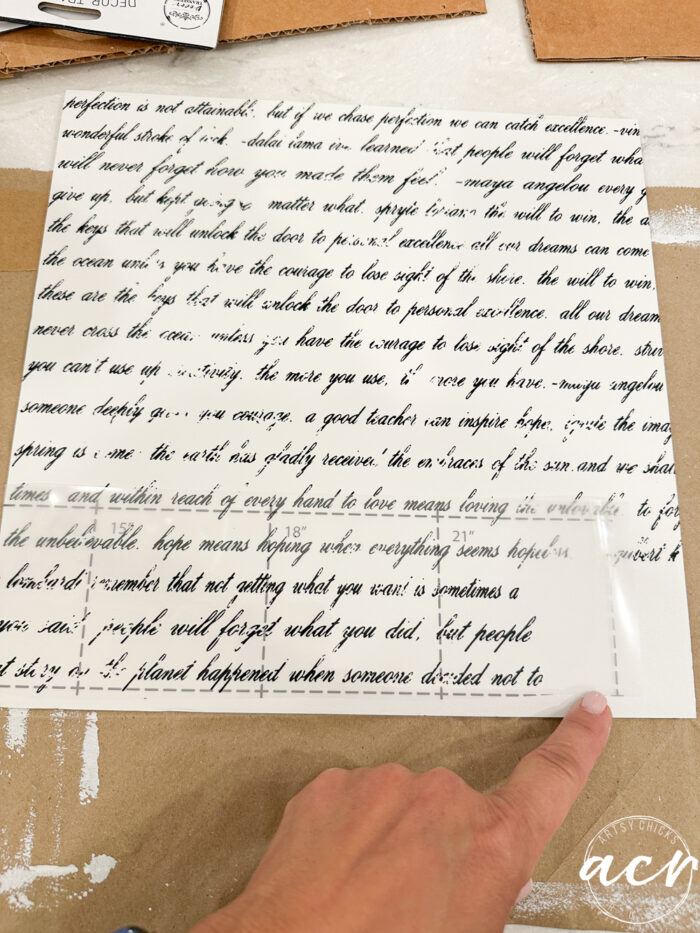 DECOR TRA
perfection is not attainable. but if we chase perfection we can catch excellence. -vin
wonderful stroke of luck. -dalai lama learned that people will forget wha
will never forget how you made them feel. -maya angelou every g
give up. but kept going matter what. the will to win. the
the keys that will unlock the door to personal excellence all our dreams can come
the ocean unless you have the courage to lose sight of the shore. the will to win.
these are the keys that will unlock the door to personal excellence. all our dream
never cross the ocean unless you have the courage to lose sight of the shore.
you can't use up creativity. the more you use, more you have. -maya angelou
someone deeply gives you courage. a good teacher can inspire hope. ignite the imag
spring is the earth has gladly received the embraces of the sun and we shall
times and within reach of every hand to love means loving the unlovable. to forg
15" 18" 21"
the unbelievable. hope means hoping when everything seems hopeless
lombardi remember that not getting what you want is sometimes a
you said people will forget what you did, but people
story on the planet happened when someone decided not to
ARTSY CHICKS
acr